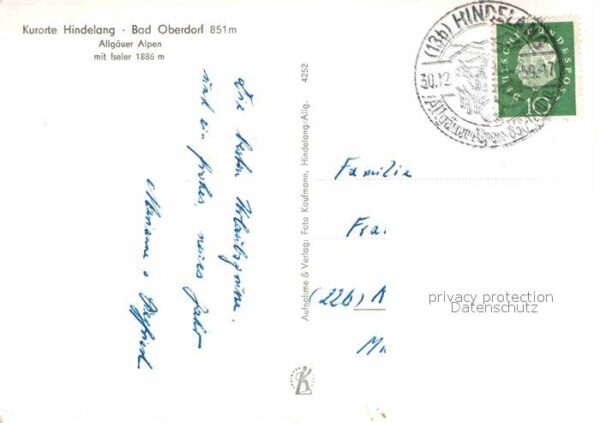 Kurorte Hindelang - Bad Oberdorf 851 m
Allgäuer Alpen
mit Iseler 1886 m
4252
Die besten Urlaubsgrüsse,
und ein frohes, neues Jahr
Marianne & Siegfried
Aufnahme & Verlag: Foto Kaufmann, Hindelang/Allg.
K
(13b) HINDELANG
30.12 59-17
Allgäuer Alpen 850
DEUTSCHE BUNDESPOST
10
Familie
Fra
(22b) K
privacy protection
Datenschutz